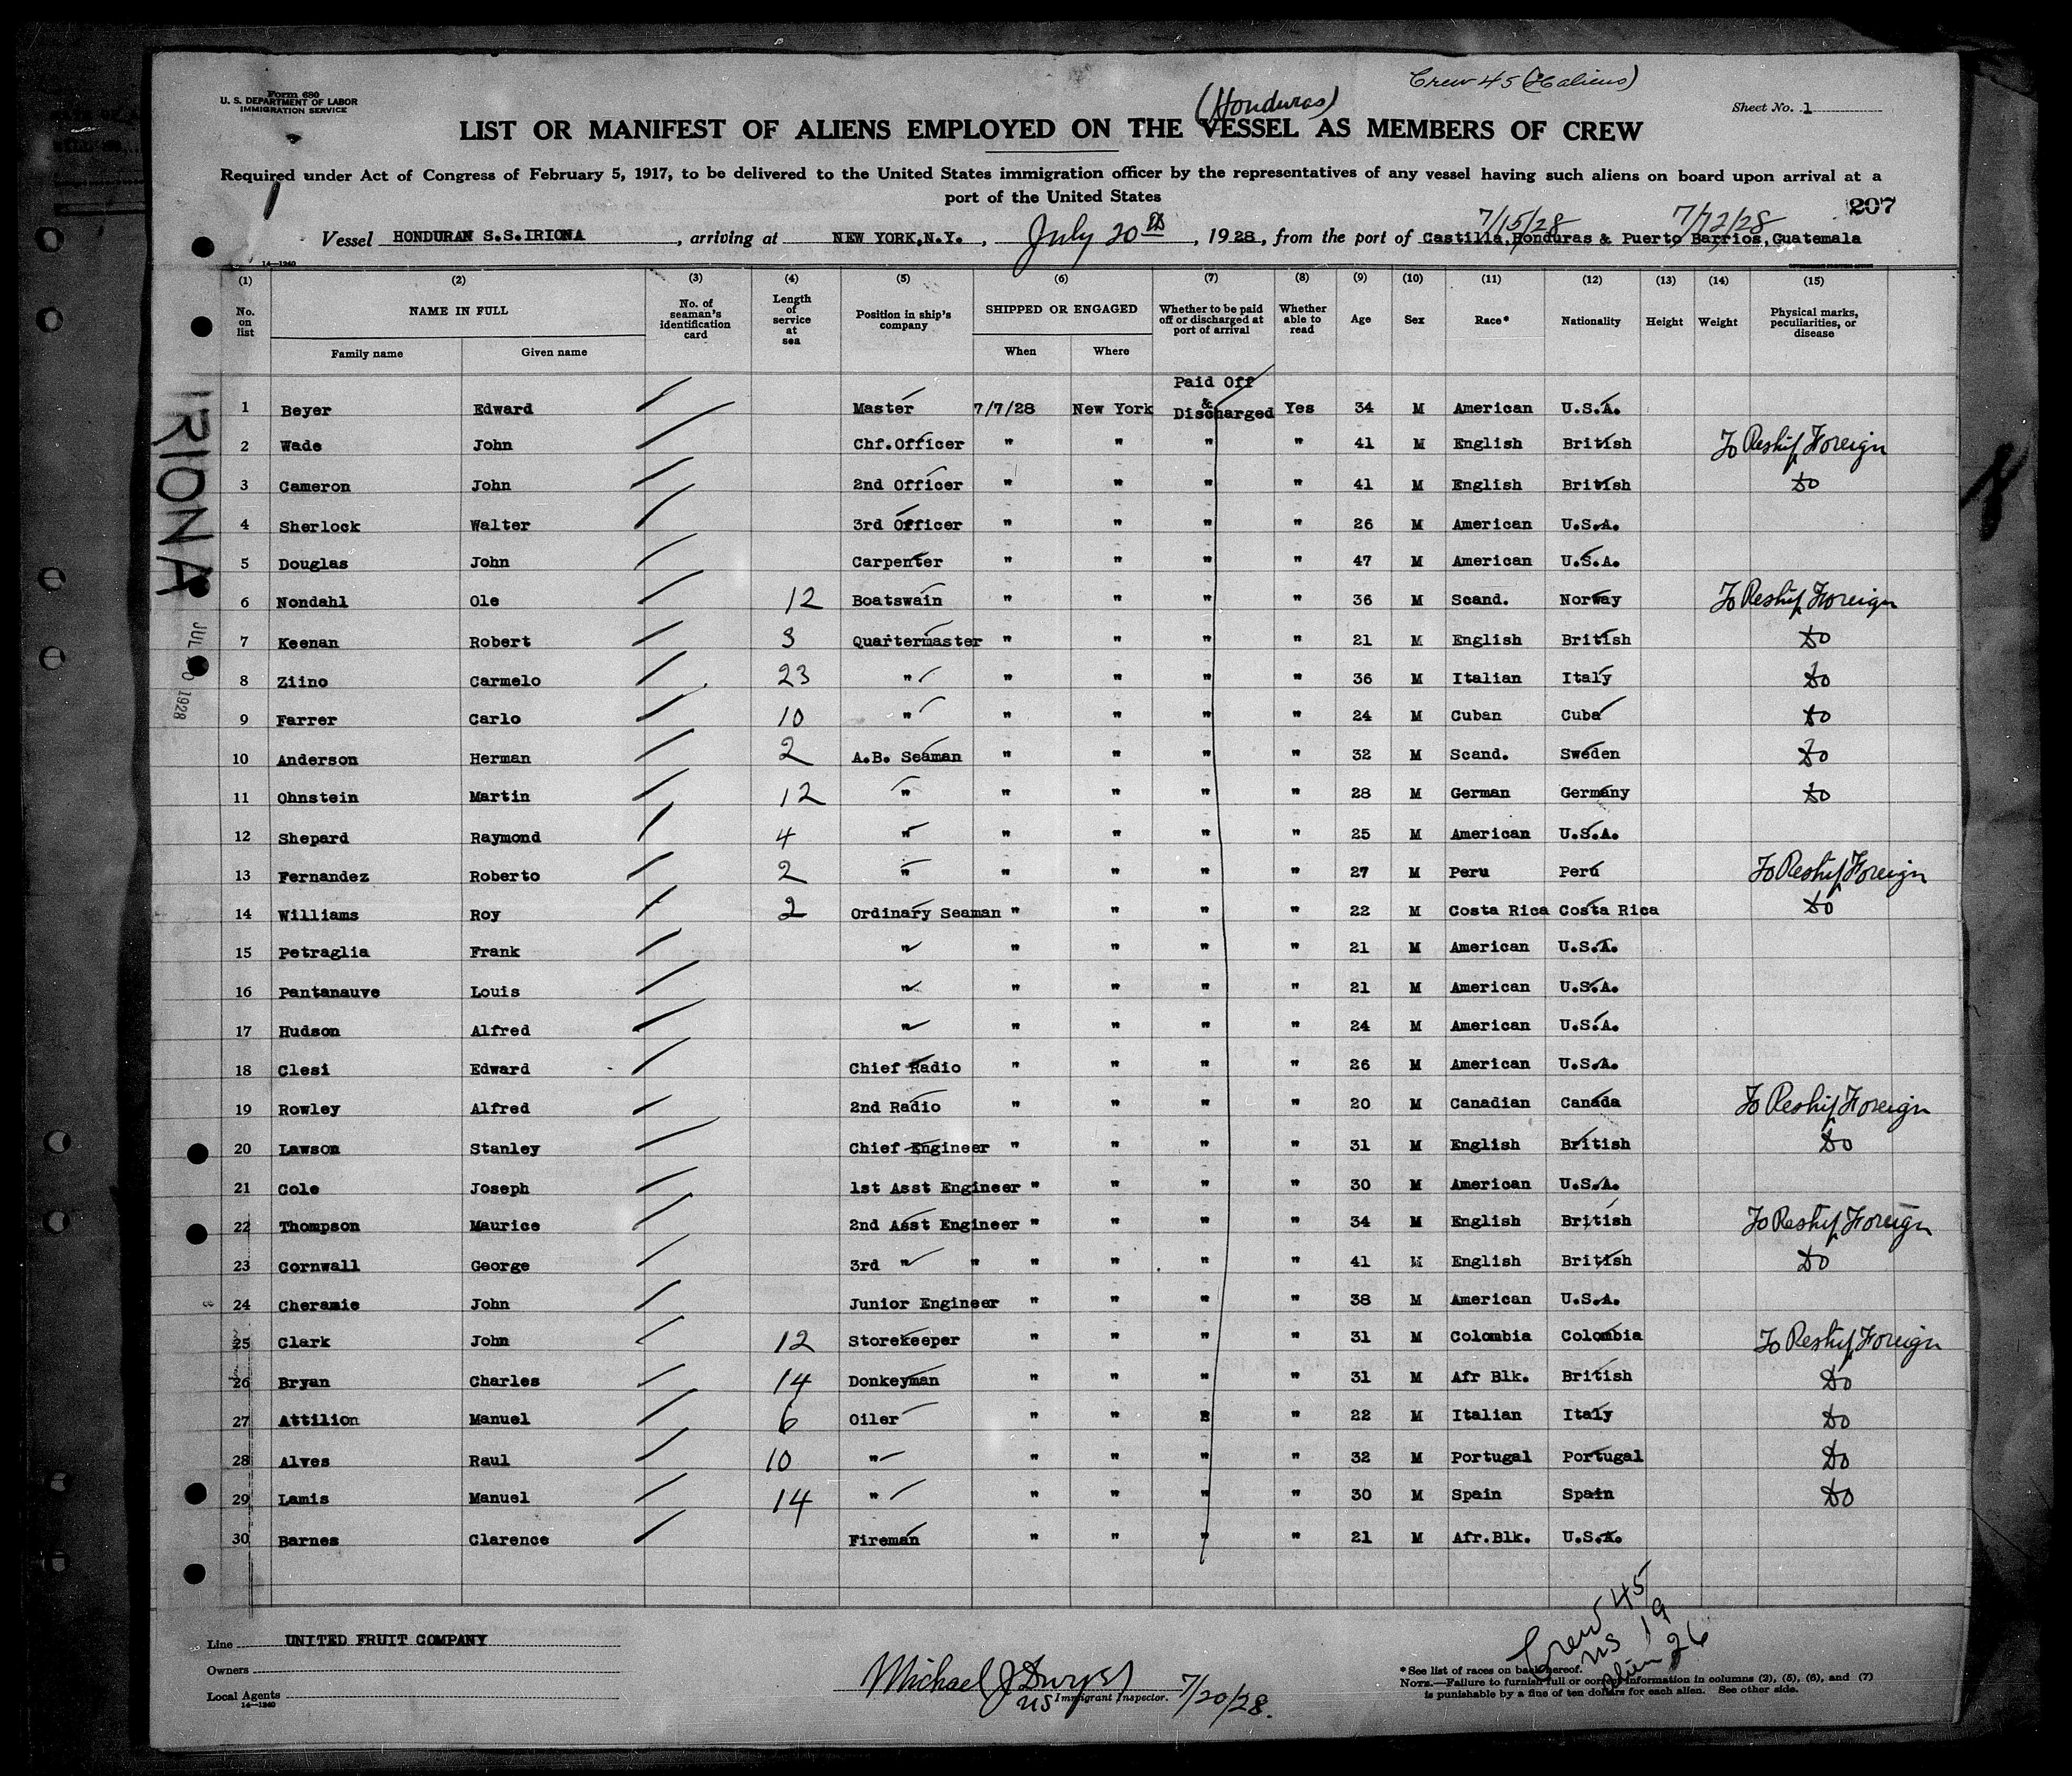 Crew 45 (aliens)
Form 680
U. S. DEPARTMENT OF LABOR
IMMIGRATION SERVICE
(Honduras)
Sheet No. 1
LIST OR MANIFEST OF ALIENS EMPLOYED ON THE VESSEL AS MEMBERS OF CREW
Required under Act of Congress of February 5, 1917, to be delivered to the United States immigration officer by the representatives of any vessel having such aliens on board upon arrival at a
port of the United States
207
7/15/28 7/12/28
Vessel HONDURAN S.S.IRIONA, arriving at NEW YORK,N.Y., July 20th, 1928, from the port of Castilla,Honduras & Puerto Barrios,Guatemala
14—1240
(1) (2) (3) (4) (5) (6) (7) (8) (9) (10) (11) (12) (13) (14) (15)
No. on list NAME IN FULL No. of seaman's identification card Length of service at sea Position in ship's company SHIPPED OR ENGAGED Whether to be paid off or discharged at port of arrival Whether able to read Age Sex Race* Nationality Height Weight Physical marks, peculiarities, or disease
Family name Given name When Where
Paid Off
&
1 Beyer Edward Master 7/7/28 New York Discharged Yes 34 M American U.S.A.
2 Wade John Chf.Officer " " " " 41 M English British To Reship Foreign
3 Cameron John 2nd Officer " " " " 41 M English British Do
4 Sherlock Walter 3rd Officer " " " " 26 M American U.S.A.
5 Douglas John Carpenter " " " " 47 M American U.S.A.
6 Nondahl Ole 12 Boatswain " " " " 36 M Scand. Norway To Reship Foreign
7 Keenan Robert 3 Quartermaster " " " " 21 M English British Do
8 Ziino Carmelo 23 " " " " " 36 M Italian Italy Do
9 Farrer Carlo 10 " " " " " 24 M Cuban Cuba Do
10 Anderson Herman 2 A.B. Seaman " " " " 32 M Scand. Sweden Do
11 Ohnstein Martin 12 " " " " " 28 M German Germany Do
12 Shepard Raymond 4 " " " " " 25 M American U.S.A.
13 Fernandez Roberto 2 " " " " " 27 M Peru Peru To Reship Foreign
14 Williams Roy 2 Ordinary Seaman " " " " 22 M Costa Rica Costa Rica Do
15 Petraglia Frank " " " " " 21 M American U.S.A.
16 Pantanauve Louis " " " " " 21 M American U.S.A.
17 Hudson Alfred " " " " " 24 M American U.S.A.
18 Clesi Edward Chief Radio " " " " 26 M American U.S.A.
19 Rowley Alfred 2nd Radio " " " " 20 M Canadian Canada To Reship Foreign
20 Lawson Stanley Chief Engineer " " " " 31 M English British Do
21 Cole Joseph 1st Asst Engineer " " " " 30 M American U.S.A.
22 Thompson Maurice 2nd Asst Engineer " " " " 34 M English British To Reship Foreign
23 Cornwall George 3rd " " " " " " 41 M English British Do
24 Cheramie John Junior Engineer " " " " 38 M American U.S.A.
25 Clark John 12 Storekeeper " " " " 31 M Colombia Colombia To Reship Foreign
26 Bryan Charles 14 Donkeyman " " " " 31 M Afr Blk. British Do
27 Attilion Manuel 6 Oiler " " " " 22 M Italian Italy Do
28 Alves Raul 10 " " " " " 32 M Portugal Portugal Do
29 Lamis Manuel 14 " " " " " 30 M Spain Spain Do
30 Barnes Clarence Fireman " " " " 21 M Afr.Blk. U.S.A.
IRIONA
JUL 20 1928
Crew 45
US 19
Alien 26
Line UNITED FRUIT COMPANY
Owners
Local Agents
14—1240
Michael J
US Immigrant Inspector. 7/20/28.
*See list of races on back hereof.
NOTE.—Failure to furnish full or correct information in columns (2), (5), (6), and (7)
is punishable by a fine of ten dollars for each alien. See other side.